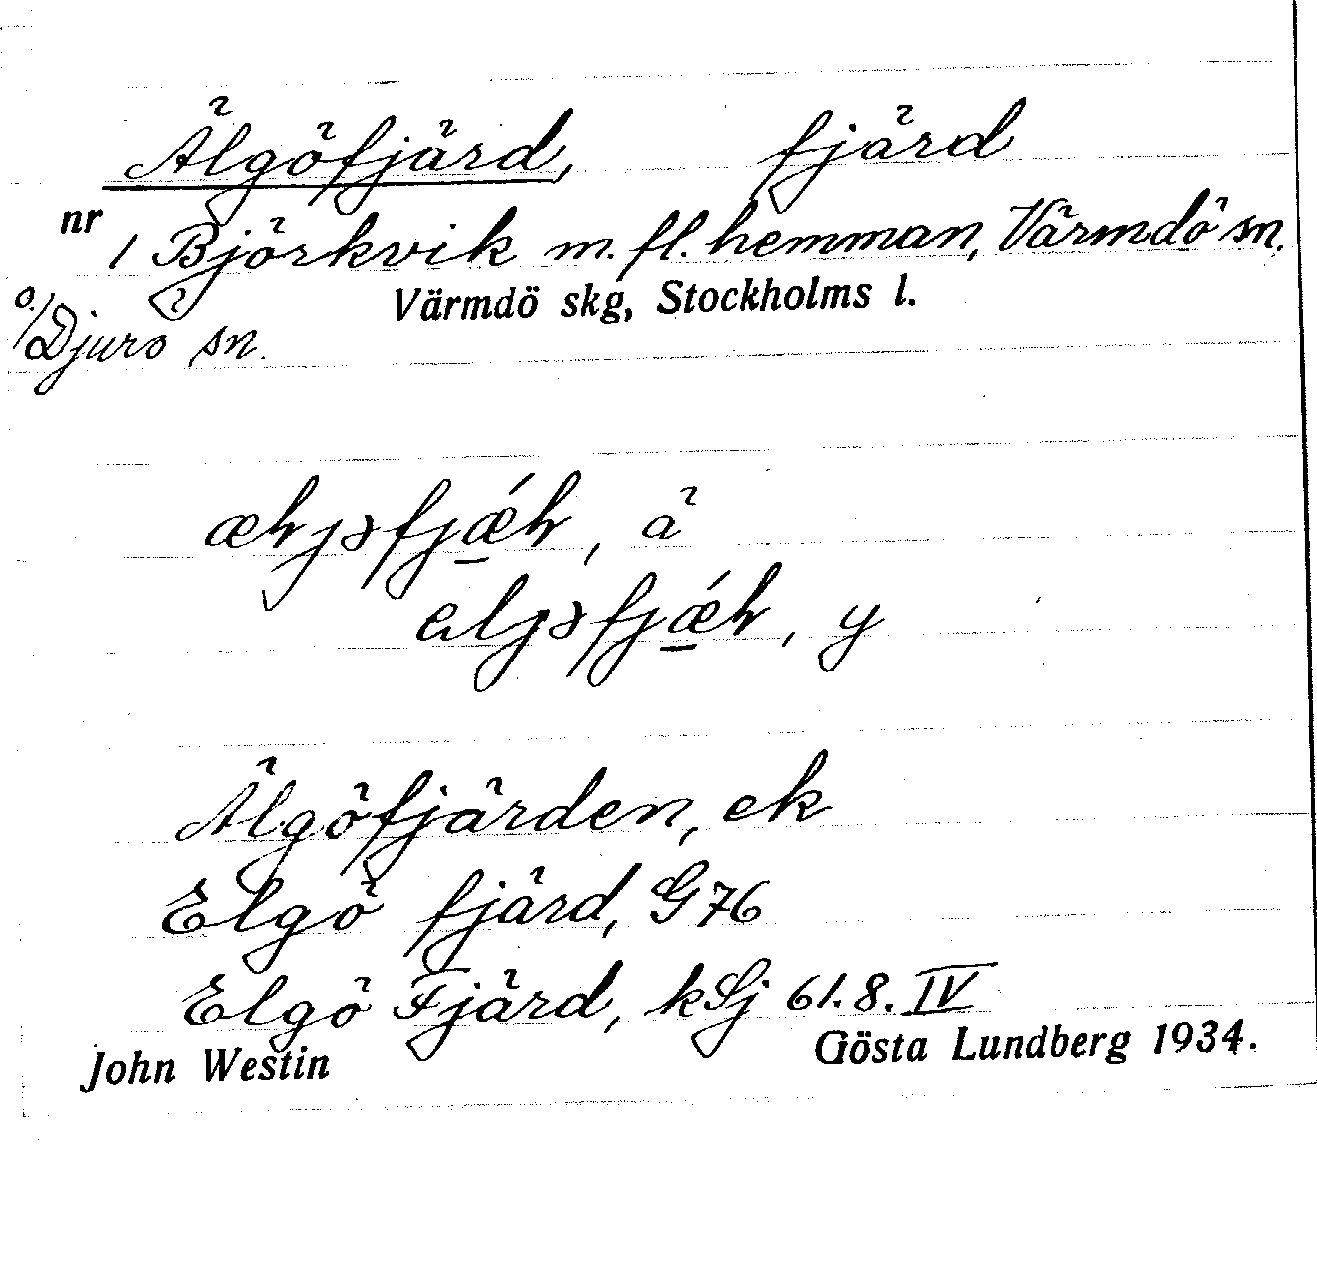 Älgöfjärd, fjärd
nr 1 Björkvik m. fl. hemman, Värmdö sn.
o/ Djurö sn. Värmdö skg, Stockholms l.
, ä
, y
Älgöfjärden, ek
Elgö fjärd, G76
Elgö Fjärd, kSj 61.8.IV
John Westin Gösta Lundberg 1934.